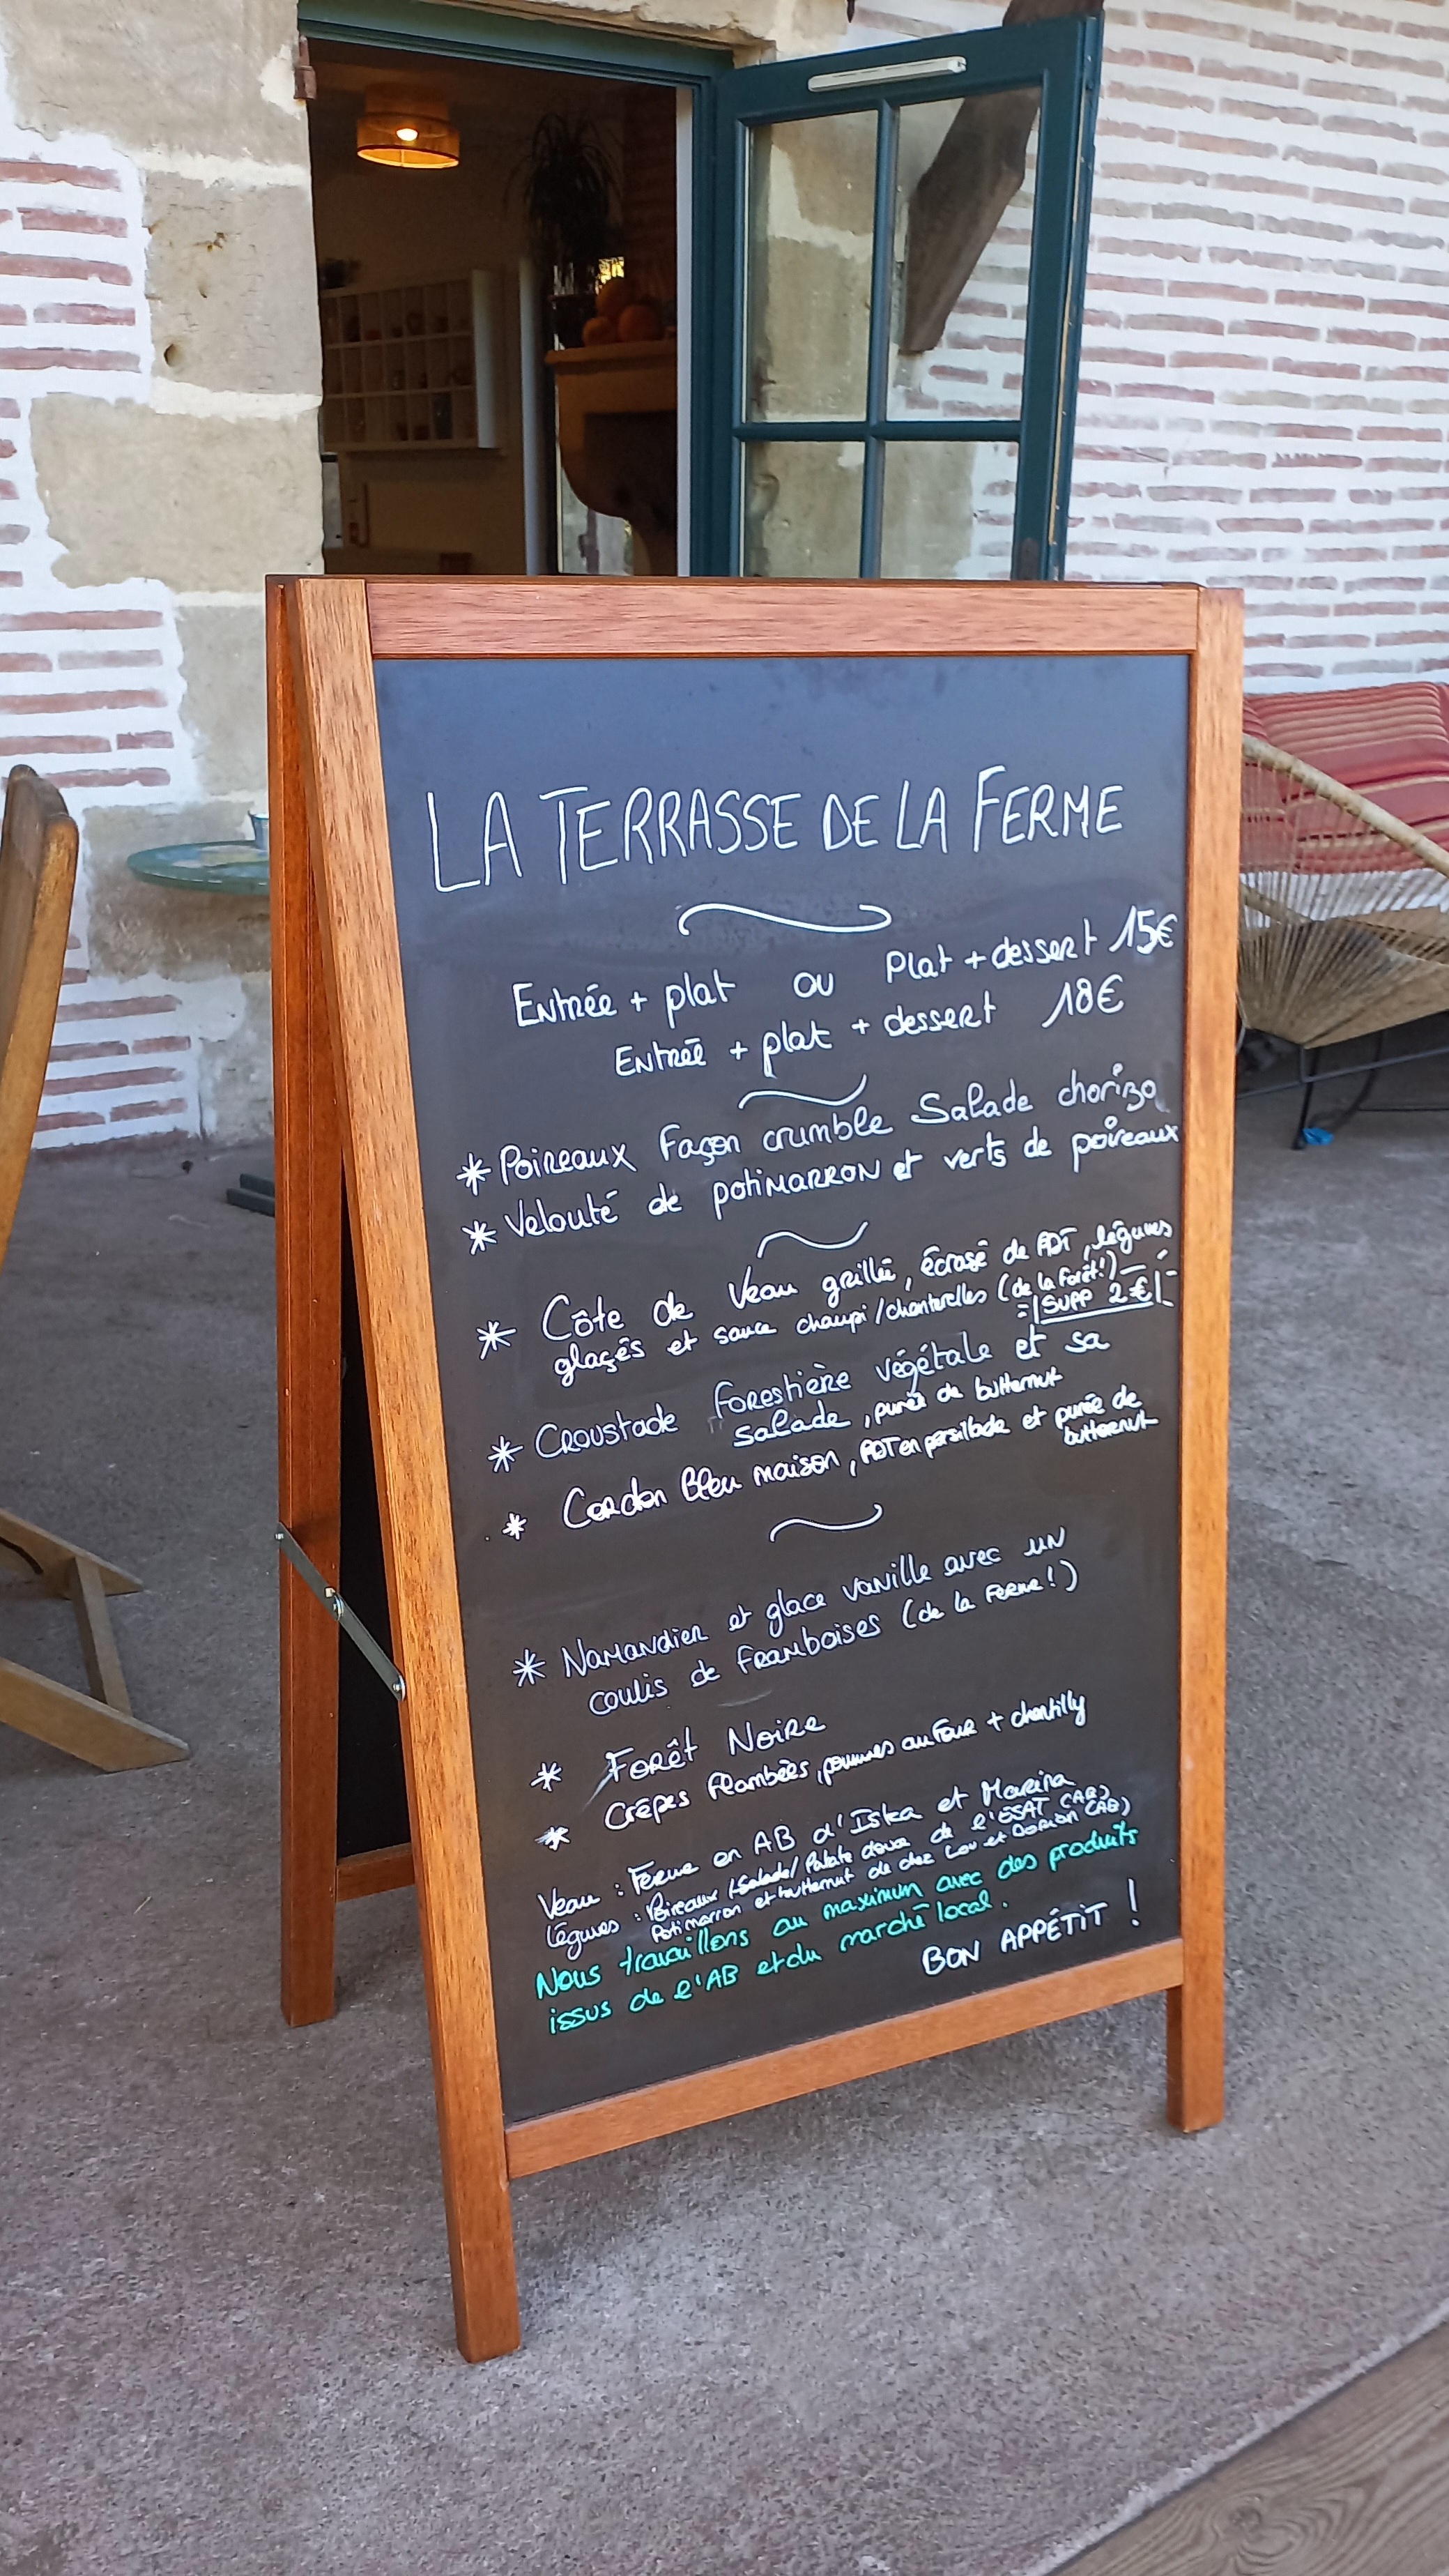 LA TERRASSE DE LA FERME
Entrée + plat ou Plat + dessert 15€
Entrée + plat + dessert 18€
* Poireaux Façon crumble Salade chorizo
* Velouté de potimarron et verts de poireaux
* Côte de Veau grillé, écrasé de PDT, légumes
glaçés et sauce champi/chanterelles (de la Forêt!)
SUPP 2€
* Croustade Forestière végétale et sa
salade, purée de butternut
* Cordon Bleu maison, PDT en persillade et purée de
butternut
* Namandier et glace vanille avec un
coulis de framboises (de la Ferme!)
* Forêt Noire
* Crêpes Flambées, pommes au Four + chantilly
Veau : Ferme en AB d'Iska et Marina
légumes : Poireaux/Salade/Patate douce de l'ESAT (AB)
Potimarron et butternut de chez Lou et Dorian (AB)
Nous travaillons au maximum avec des produits
issus de l'AB et du marché local.
BON APPÉTIT !